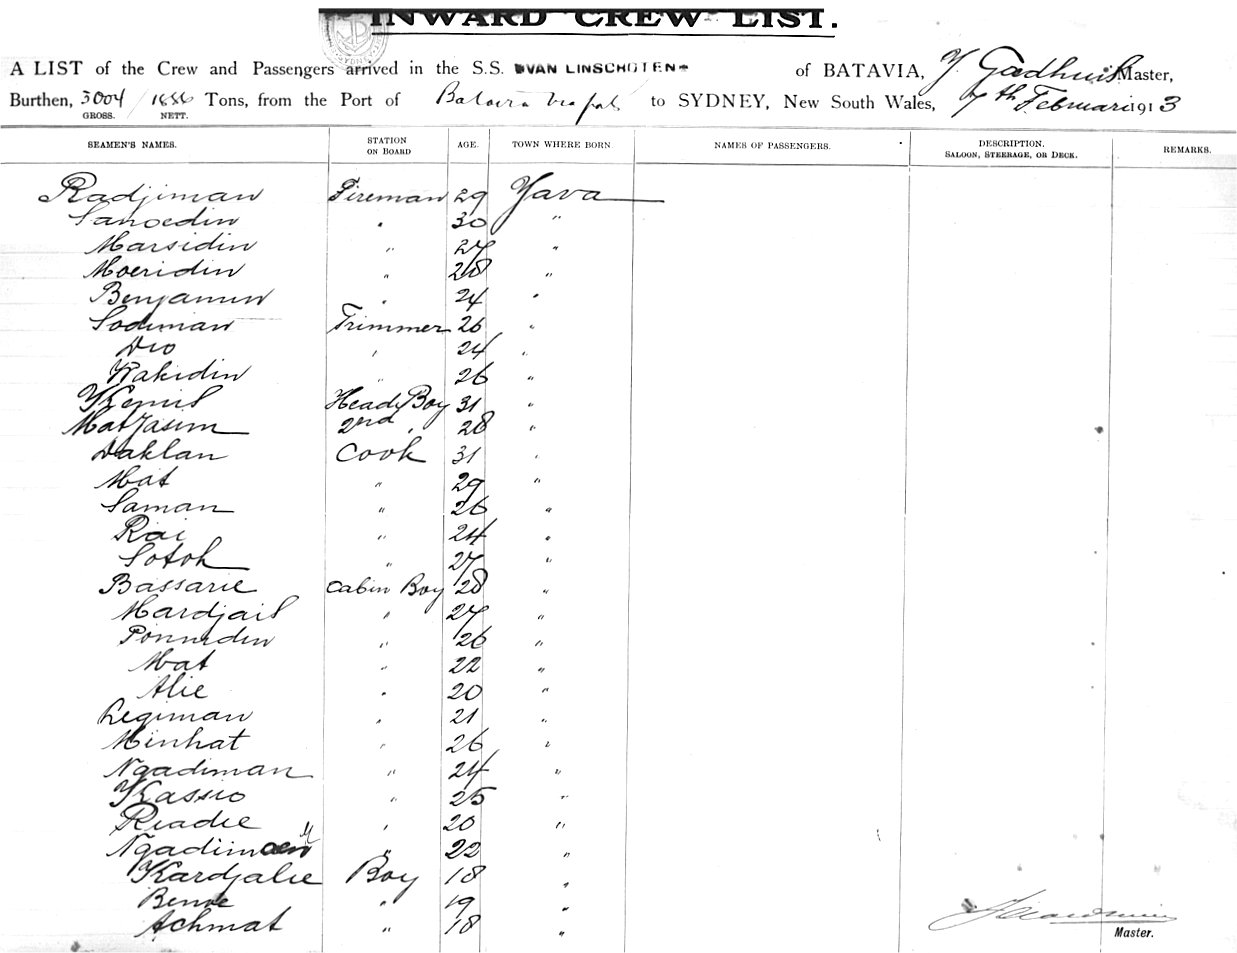 INWARD CREW LIST.
A LIST of the Crew and Passengers arrived in the S.S. VAN LINSCHOTEN of BATAVIA, Master,
Burthen, 3004 / 1886 Tons, from the Port of Batavia to SYDNEY, New South Wales, 7th Februari 1913
GROSS. NETT.
SEAMEN'S NAMES. STATION ON BOARD AGE. TOWN WHERE BORN. NAMES OF PASSENGERS. DESCRIPTION. SALOON, STEERAGE, OR DECK. REMARKS.
Radjiman Fireman 29 Yava
Sanoedin " 30 "
Marsidin " 27 "
Moeridin " 28 "
Benjamin " 24 "
Sodiman Trimmer 26 "
" 24 "
Kakidin " 26 "
Head Boy 31 "
Mat Jasim 2nd " 28 "
Daklan Cook 31 "
Mat " 29 "
Saman " 26 "
Rai " 24 "
Sotoh " 27 "
Bassarie Cabin Boy 28 "
Mardjail " 27 "
Ponnidin " 26 "
Mat " 22 "
Alie " 20 "
Legiman " 21 "
Minhat " 26 "
Ngadiman " 24 "
Kassio " 25 "
Riadie " 20 "
" 22 "
Kardjalie Boy 18 "
" 19 "
Achmat " 18 "
Master.